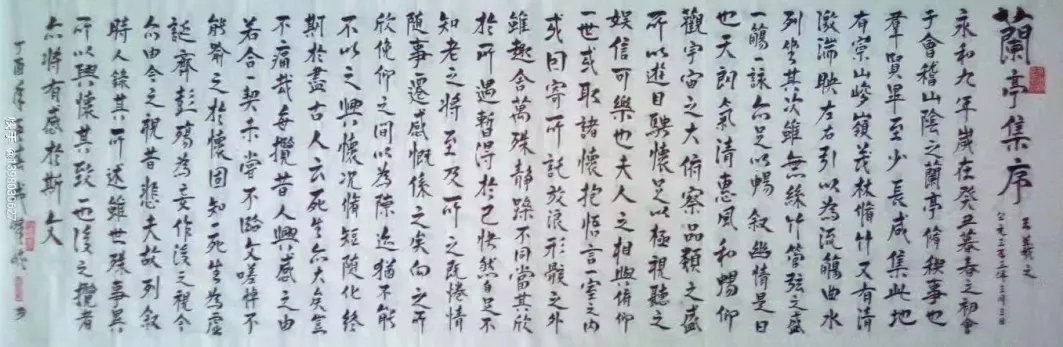 蘭亭集序
王羲之
公元三五三年三月三日
永和九年歲在癸丑暮春之初會
于會稽山陰之蘭亭脩稧事也
羣賢畢至少長咸集此地
有崇山峻嶺茂林脩竹又有清流
激湍映左右引以為流觴曲水
列坐其次雖無絲竹管弦之盛
一觴一詠亦足以暢叙幽情是日
也天朗氣清惠風和暢仰
觀宇宙之大俯察品類之盛
所以遊目騁懷足以極視聽之
娱信可樂也夫人之相與俯仰
一世或取諸懷抱悟言一室之内
或因寄所託放浪形骸之外
雖趣舍萬殊静躁不同當其欣
於所遇暫得於己快然自足不
知老之將至及所之既惓情
隨事遷感慨係之矣向之所
欣俛仰之間以為陳迹猶不能
不以之興懷况脩短随化終
斯於盡古人云死生亦大矣豈
不痛哉每攬昔人興感之由
若合一契未嘗不臨文嗟悼不
能喻之於懷固知一死生為虚
誕齊彭殤為妄作後之視今
亦由今之視昔悲夫故列叙
時人録其所述雖世殊事異
所以興懷其致一也後之攬者
亦將有感於斯文
丁酉年
快手